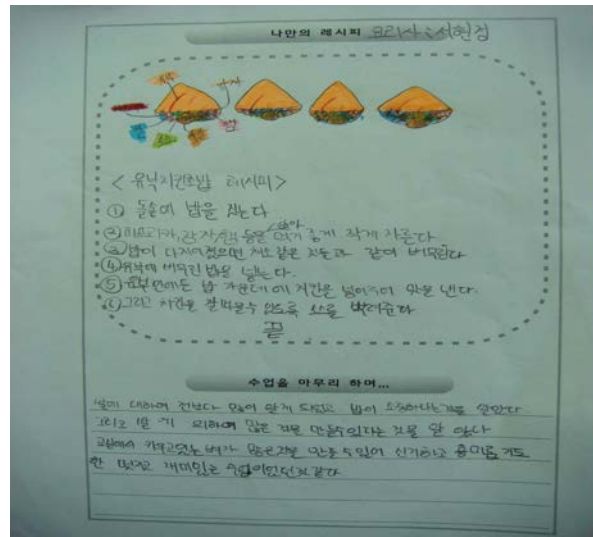 나만의 레시피 요리사 : 서현정
밥
<유부치킨초밥 레시피>
① 돌솥에 밥을 짓는다
② 파프리카, 감자, 햄 등을 먹기 좋게 작게 자른다
③ 밥이 다 지어졌으면 채소 같은 것들과 같이 버무린다
④ 유부에 버무린 밥을 넣는다.
⑤ 유부 안에 든 밥 가운데에 치킨을 넣어주어 맛을 낸다.
⑥ 그리고 치킨을 잘 먹을 수 있도록 소스를 뿌려준다
끝
수업을 마무리 하며...
쌀에 대하여 전보다 많이 알게 되었고 밥이 소중하다는 것을 알았다
그리고 쌀 에 의하여 많은 것을 만들수있다는 것을 알 았다
교실에서 키우고있는 벼가 많은것을 만들 수 있어 신기하고 흥미롭기도
한 멋지고 재미있는 수업이었던것 같다